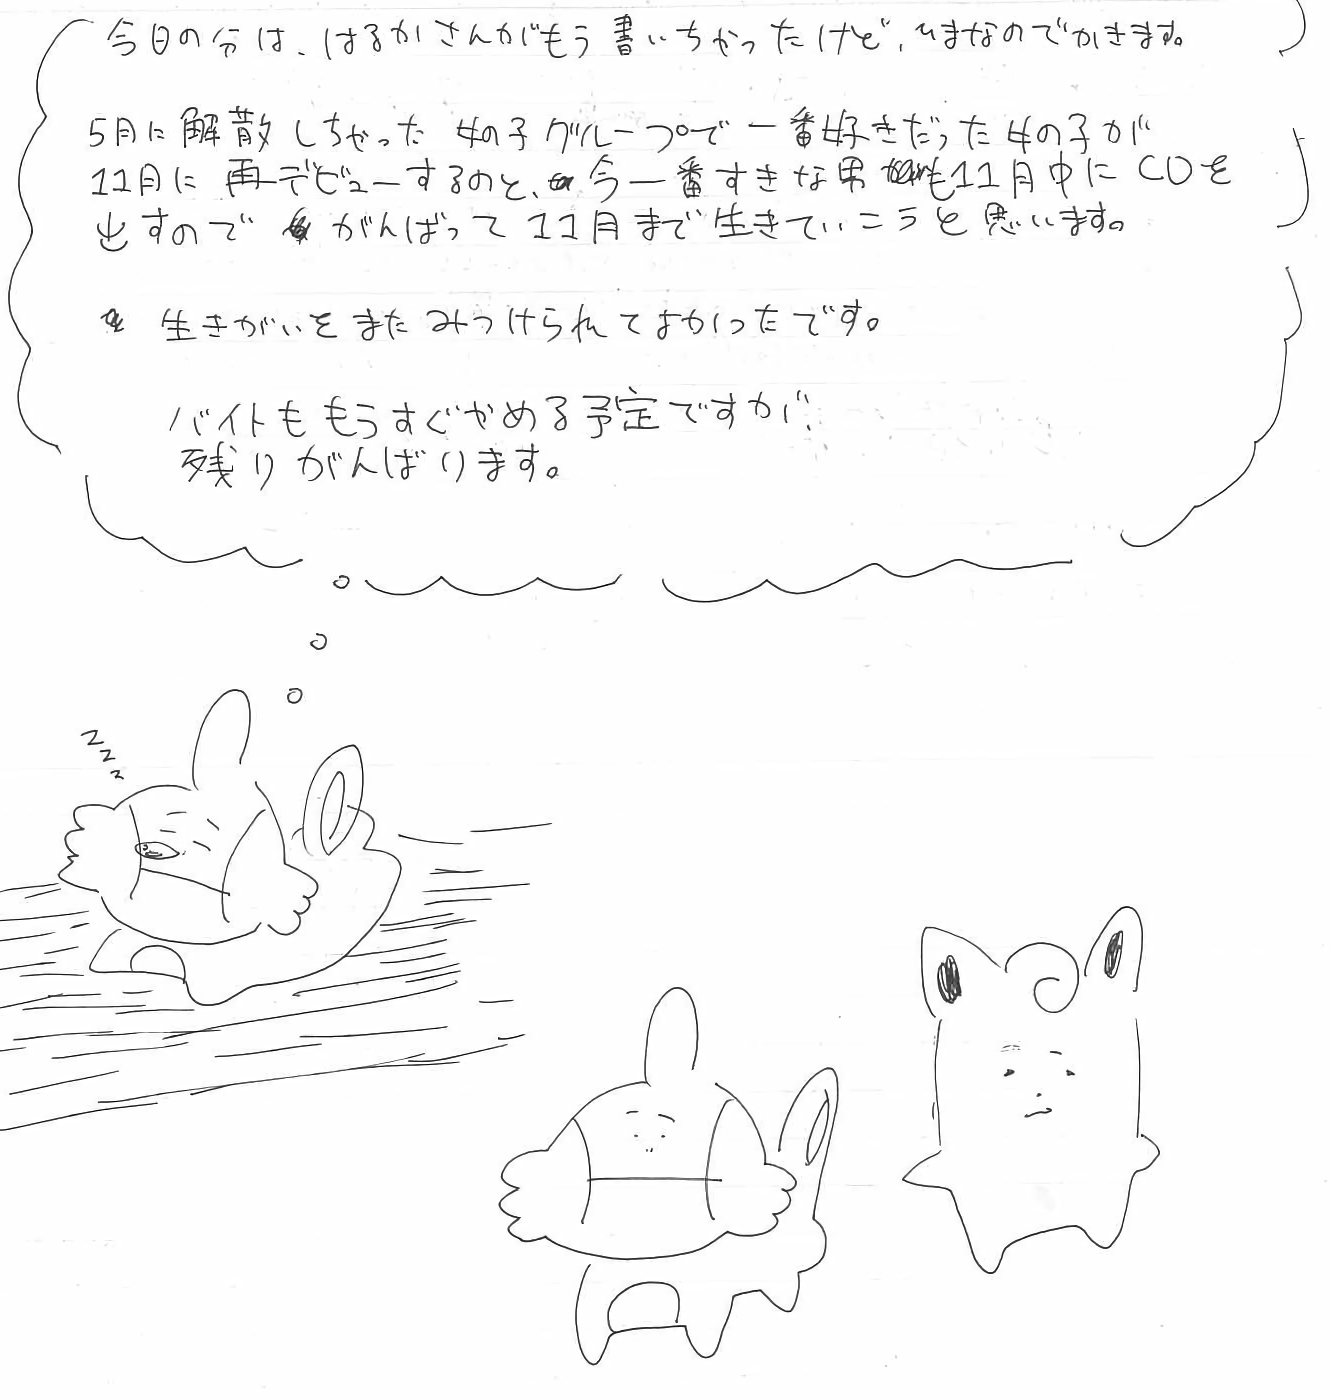 今日の分は、はるかさんがもう書いちゃったけど、ひまなのでかきます。
5月に解散しちゃった女の子グループで一番好きだった女の子が
11月に再デビューするのと、今一番すきな男も11月中にCDを
出すので がんばって11月まで生きていこうと思います。
生きがいをまたみつけられてよかったです。
バイトももうすぐやめる予定ですが、
残りがんばります。
zzz